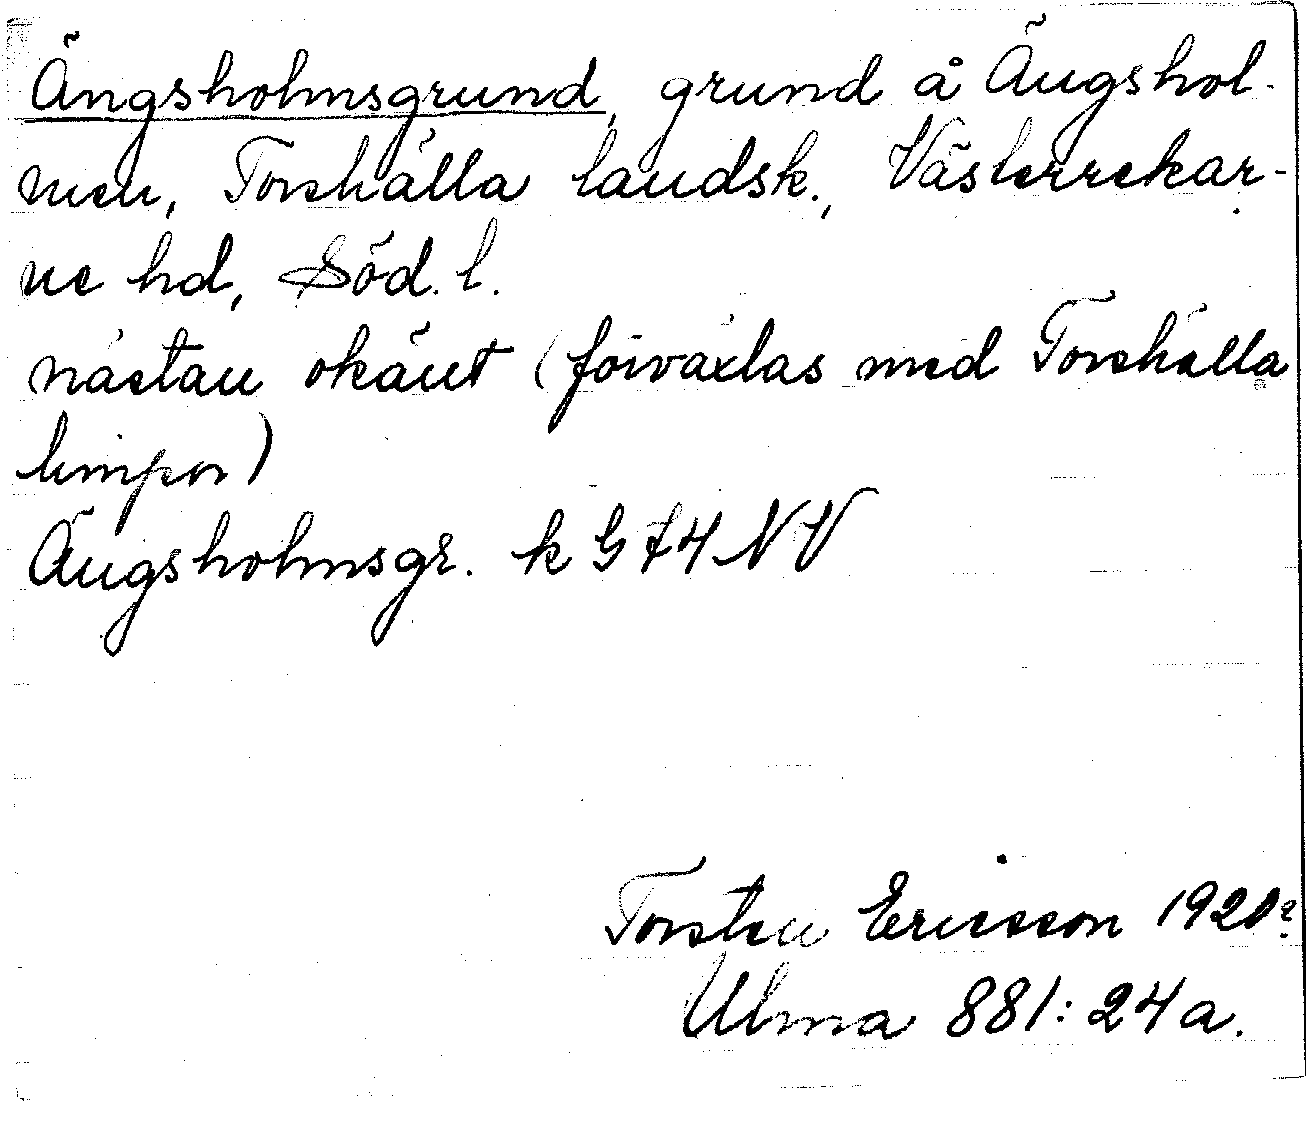 Ängsholmsgrund, grund å Ängshol-
men, Torshälla landsk., Västerrekar-
ne hd, Söd. l.
nästan okänt (förväxlas med Torshälla
limpor)
Ängsholmsgr. k G 74 NV
Torsten Ericsson 1920?
Ulma 881:24a.